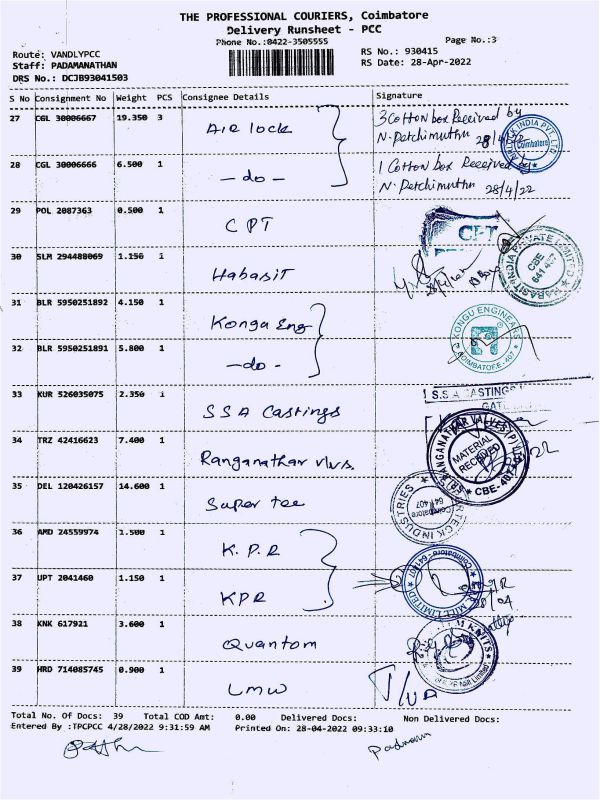 THE PROFESSIONAL COURIERS, Coimbatore
Delivery Runsheet - PCC
Phone No.:0422-3505555
Page No.:3
Route: VANDLYPCC
Staff: PADAMANATHAN
DRS No.: DCJB93041503
RS No.: 930415
RS Date: 28-Apr-2022
S No Consignment No Weight PCS Consignee Details Signature
27 CGL 30006667 19.350 3 Air lock 3 Cotton box Received by
N. Petchimuthu 28/4/22
28 CGL 30006666 6.500 1 -do- 1 Cotton box Received by
N. Petchimuthu 28/4/22
29 POL 2087363 0.500 1 CPT
30 SLM 294488069 1.150 1 Habasit
31 BLR 5950251892 4.150 1 Kongu Eng
32 BLR 5950251891 5.800 1 -do-
33 KUR 526035075 2.350 1 SSA Castings
34 TRZ 42416623 7.400 1 Ranganathar vlvs.
35 DEL 120426157 14.600 1 Super tec
36 AMD 24559974 1.500 1 K.P.R
37 UPT 2041460 1.150 1 KPR
38 KNK 617921 3.600 1 Quantom
39 HRD 714085745 0.900 1 LMW
Coimbatore
HABASIT INDIA PRIVATE LIMITED
CBE
641 407
KONGU ENGINEERS
S.S.A CASTINGS
SRI RANGANATHAR VALVES (P) LTD
MATERIAL
RECEIVED
CBE-407
Coimbatore
641 407
Total No. Of Docs: 39 Total COD Amt: 0.00 Delivered Docs: Non Delivered Docs:
Entered By :TPCPCC 4/28/2022 9:31:59 AM Printed On: 28-04-2022 09:33:10